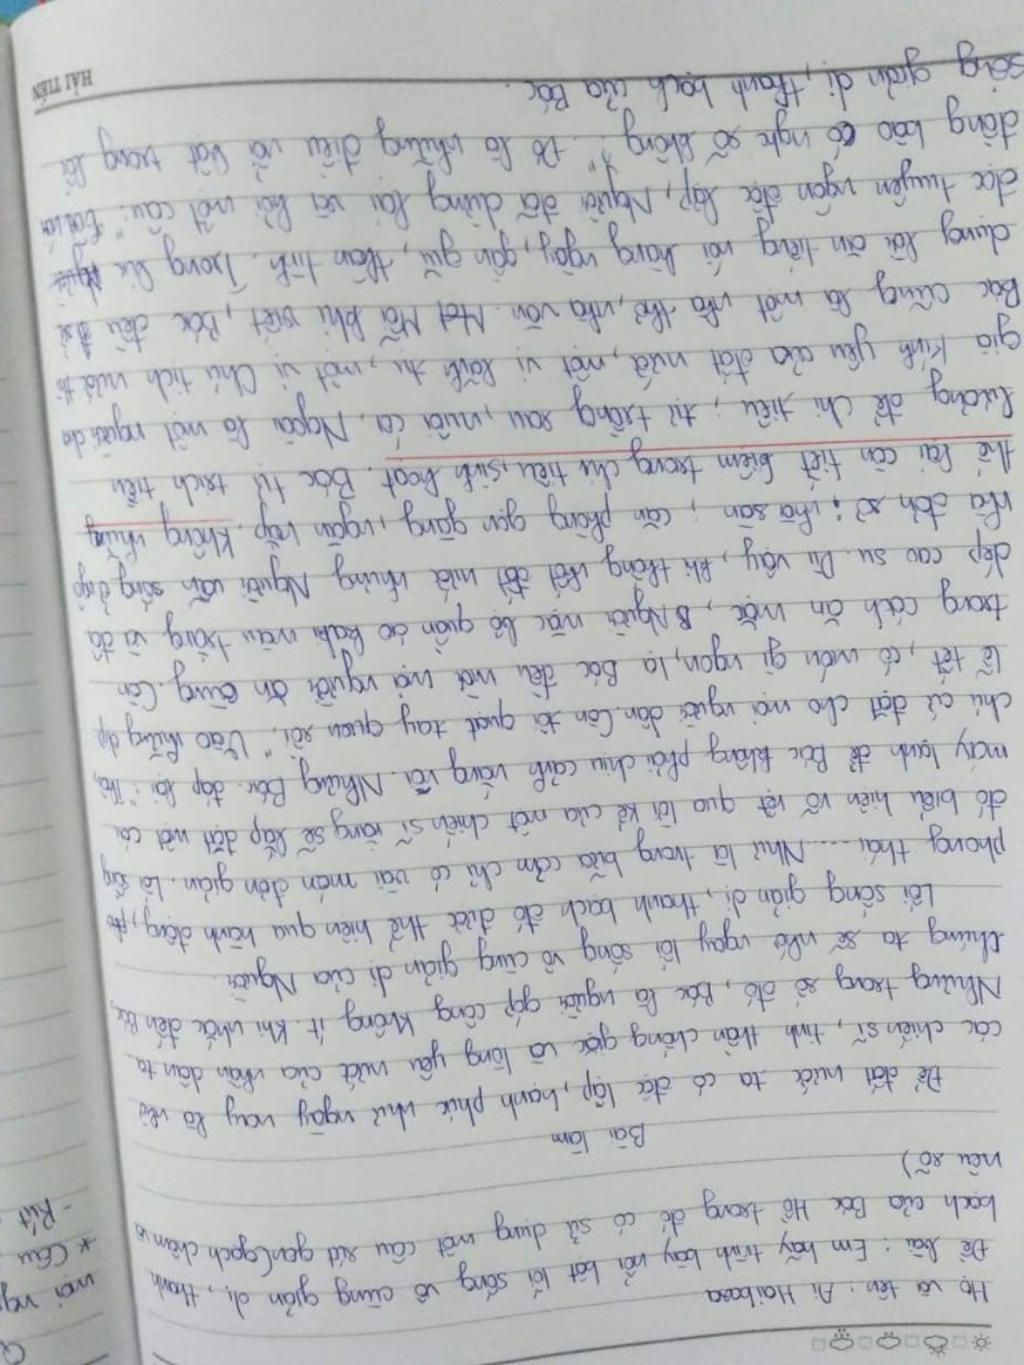 Họ và tên: Ai Haibasa
Đề bài: Em hãy trình bày nổi bật lối sống vô cùng giản dị, thanh
bạch của Bác Hồ trong đó có sử dụng một câu rút gọn (gạch chân và
nêu rõ)
Bài làm
Để đất nước ta có độc lập, hạnh phúc như ngày nay là nhờ
các chiến sĩ, tinh thần chống giặc và lòng yêu nước của nhân dân ta.
Nhưng trong số đó, Bác là người góp công không ít. Khi nhắc đến Bác,
chúng ta sẽ nhớ ngay lối sống vô cùng giản dị của Người.
Lối sống giản dị, thanh bạch đó được thể hiện qua hành động,
phong thái.... Như là trong bữa cơm chỉ có vài món đơn giản. Lối sống
đó biểu hiện rõ rệt qua lời kể của một chiến sĩ rằng sẽ lắp đặt một cái
máy lạnh để Bác không phải chịu cảnh nóng nữa. Nhưng Bác đáp lại: "Thôi,
chú cứ đặt cho mọi người dân. Còn tôi quạt tay quen rồi". Vào những dịp
lễ tết, có món gì ngon, lạ, Bác đều mời mọi người ăn cùng. Còn
trong cách ăn mặc, Người mặc bộ quần áo kaki màu trắng và đôi
dép cao su. Dù vậy, khi thống nhất đất nước nhưng Người vẫn sống ở ngôi
nhà đơn sơ: nhà sàn; căn phòng gọn gàng, ngăn nắp. Không những
thế lại còn tiết kiệm trong chi tiêu, sinh hoạt. Bác tự trích tiền
lương để chi tiêu; tự trồng rau, nuôi cá. Ngoài là một người cha
già kính yêu của đất nước, một vị lãnh tụ, một vị Chủ tịch nước thì
Bác cũng là một nhà thơ, nhà văn. Mỗi khi viết, Bác đều sử
dụng lời ăn tiếng nói hàng ngày, gần gũi, thân tình. Trong lúc
đọc tuyên ngôn độc lập, Người đã dừng lại và hỏi một câu: "
đồng bào có nghe rõ không?". Đó là những điều nổi bật trong lối
sống giản dị, thanh bạch của Bác.
HẢI TIẾN
mọi
* Câu
- Rút